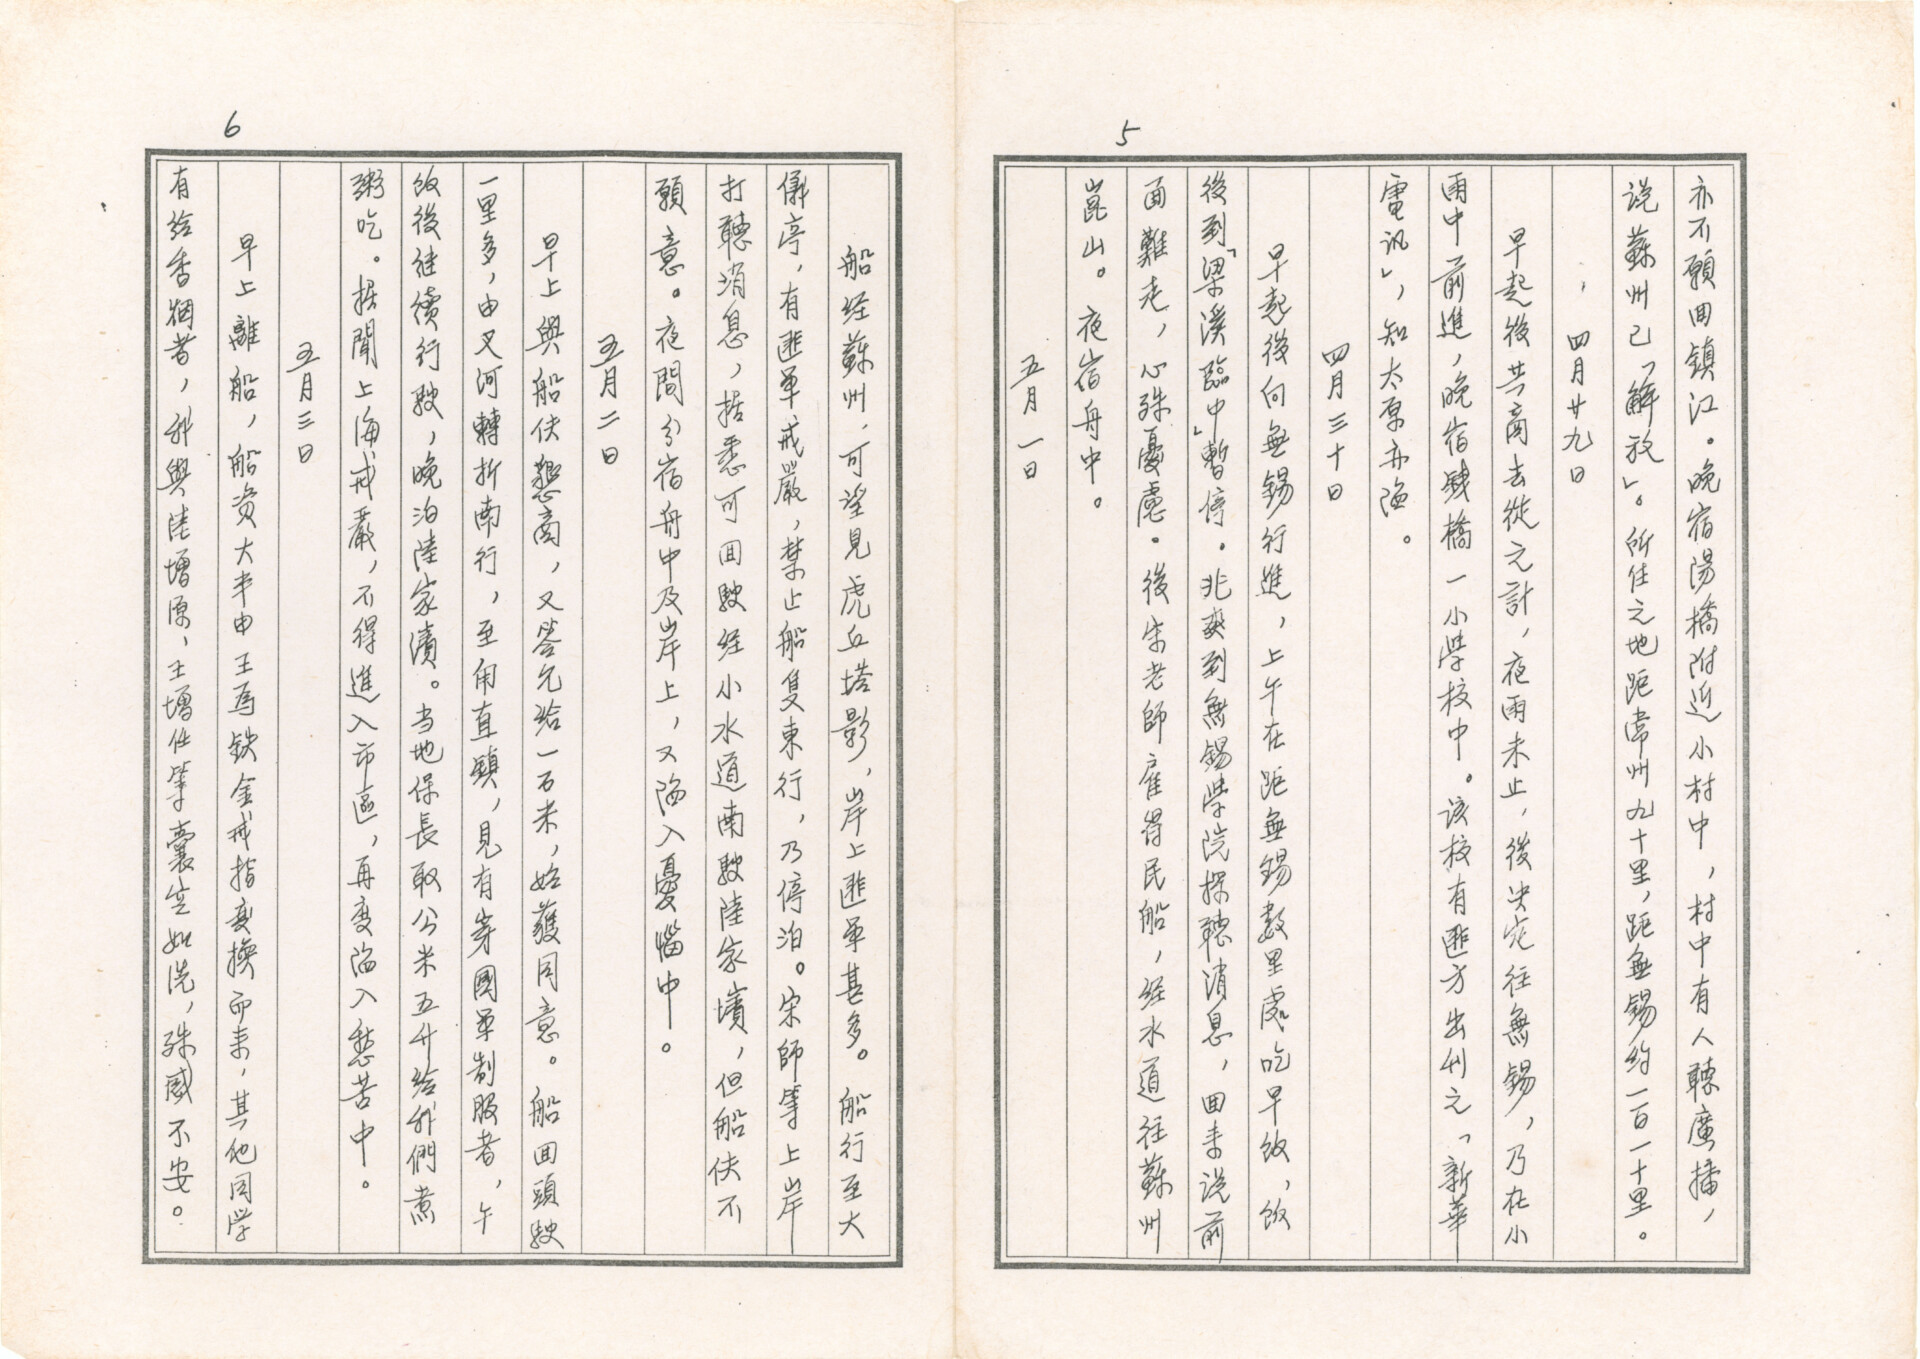 5
亦不願回鎮江。晚宿陽橋附近小村中，村中有人聽廣播，
說蘇州已「解放」。所住之地距常州九十里，距無錫約一百一十里。
四月廿九日
早起後共商去從之計，夜雨未止，後決定往無錫，乃在小
雨中前進，晚宿 橋一小學校中。該校有匪方出刊之「新華
電訊」，知太原亦陷。
四月三十日
早起後向無錫行進，上午在距無錫數里處吃早飯，飯
後到「梁溪臨中」暫停。兆奕到無錫學院探聽消息，回来說前
面難走，心殊憂慮。後宋老師雇得民船，經水道往蘇州
崑山。夜宿舟中。
五月一日
6
船經蘇州，可望見虎丘塔影，岸上匪軍甚多。船行至大
儀亭，有匪軍戒嚴，禁止船隻東行，乃停泊。宋師等上岸
打聽消息，据悉可回駛經小水道南駛陸家 ，但船伕不
願意。夜間分宿舟中及岸上，又陷入憂惱中。
五月二日
早上與船伕懇商，又答允給一石米，始獲同意。船回頭駛
一里多，由叉河轉折南行，至甪直鎮，見有穿國軍制服者，午
飯後继續行駛，晚泊陸家 。当地保長取公米五升給我們煮
粥吃。据聞上海戒嚴，不得進入市區，再度陷入愁苦中。
五月三日
早上離船，船資大半由王為鉄金戒指変換而来，其他同学
有給香烟者，我與陸增原、王增任等囊空如洗，殊感不安。